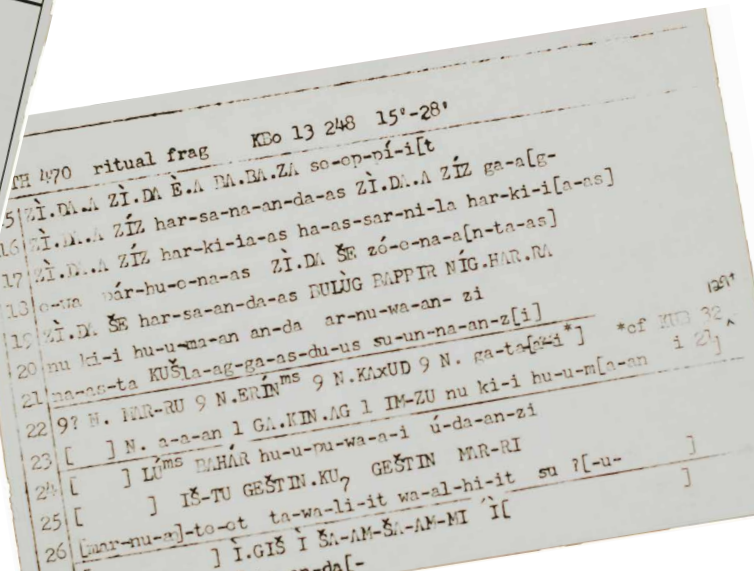 TH 470 ritual frag KBo 13 248 15'-28'
15 ZÌ.DA.A ZÌ.DA È.A BA.BA.ZA so-op-pí-i[t
16 ZÌ.DA.A ZÍZ har-sa-na-an-da-as ZÌ.DA.A ZÍZ ga-a[g-
17 ZÌ.DA.A ZÍZ har-ki-ia-as ha-as-sar-ni-la har-ki-i[a-as]
18 o-wa pár-hu-o-na-as ZÌ.DA ŠE zó-o-na-a[n-ta-as]
19 ZÌ.DA ŠE har-sa-an-da-as BULÙG BAPPIR NÍG.HAR.RA
20 nu ki-i hu-u-ma-an an-da ar-nu-wa-an- zi
21 na-as-ta KUŠla-ag-ga-as-du-us su-un-na-an-z[i]
22 9? N. MAR-RU 9 N.ERÍNms 9 N.KAxUD 9 N. ga-ta[ *] *cf KUB 32 129+
23 [ ] N. a-a-an 1 GA.KIN.AG 1 IM-ZU nu ki-i hu-u-m[a-an i 27]
24 [ ] LÚms BAHÁR hu-u-pu-wa-a-i ú-da-an-zi
25 [ ] IŠ-TU GEŠTIN.KU7 GEŠTIN MAR-RI
26 [mar-nu-an]-to-ot ta-wa-li-it wa-al-hi-it su ?[-u- ]
] Ì.GIŠ Ì ŠA-AM-ŠA-AM-MI Ì[ ]
-da[-